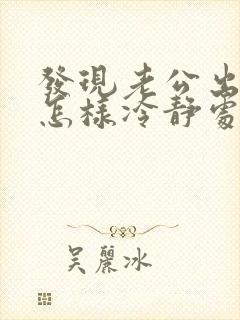 發現老公出
怎樣冷靜處
吳麗冰